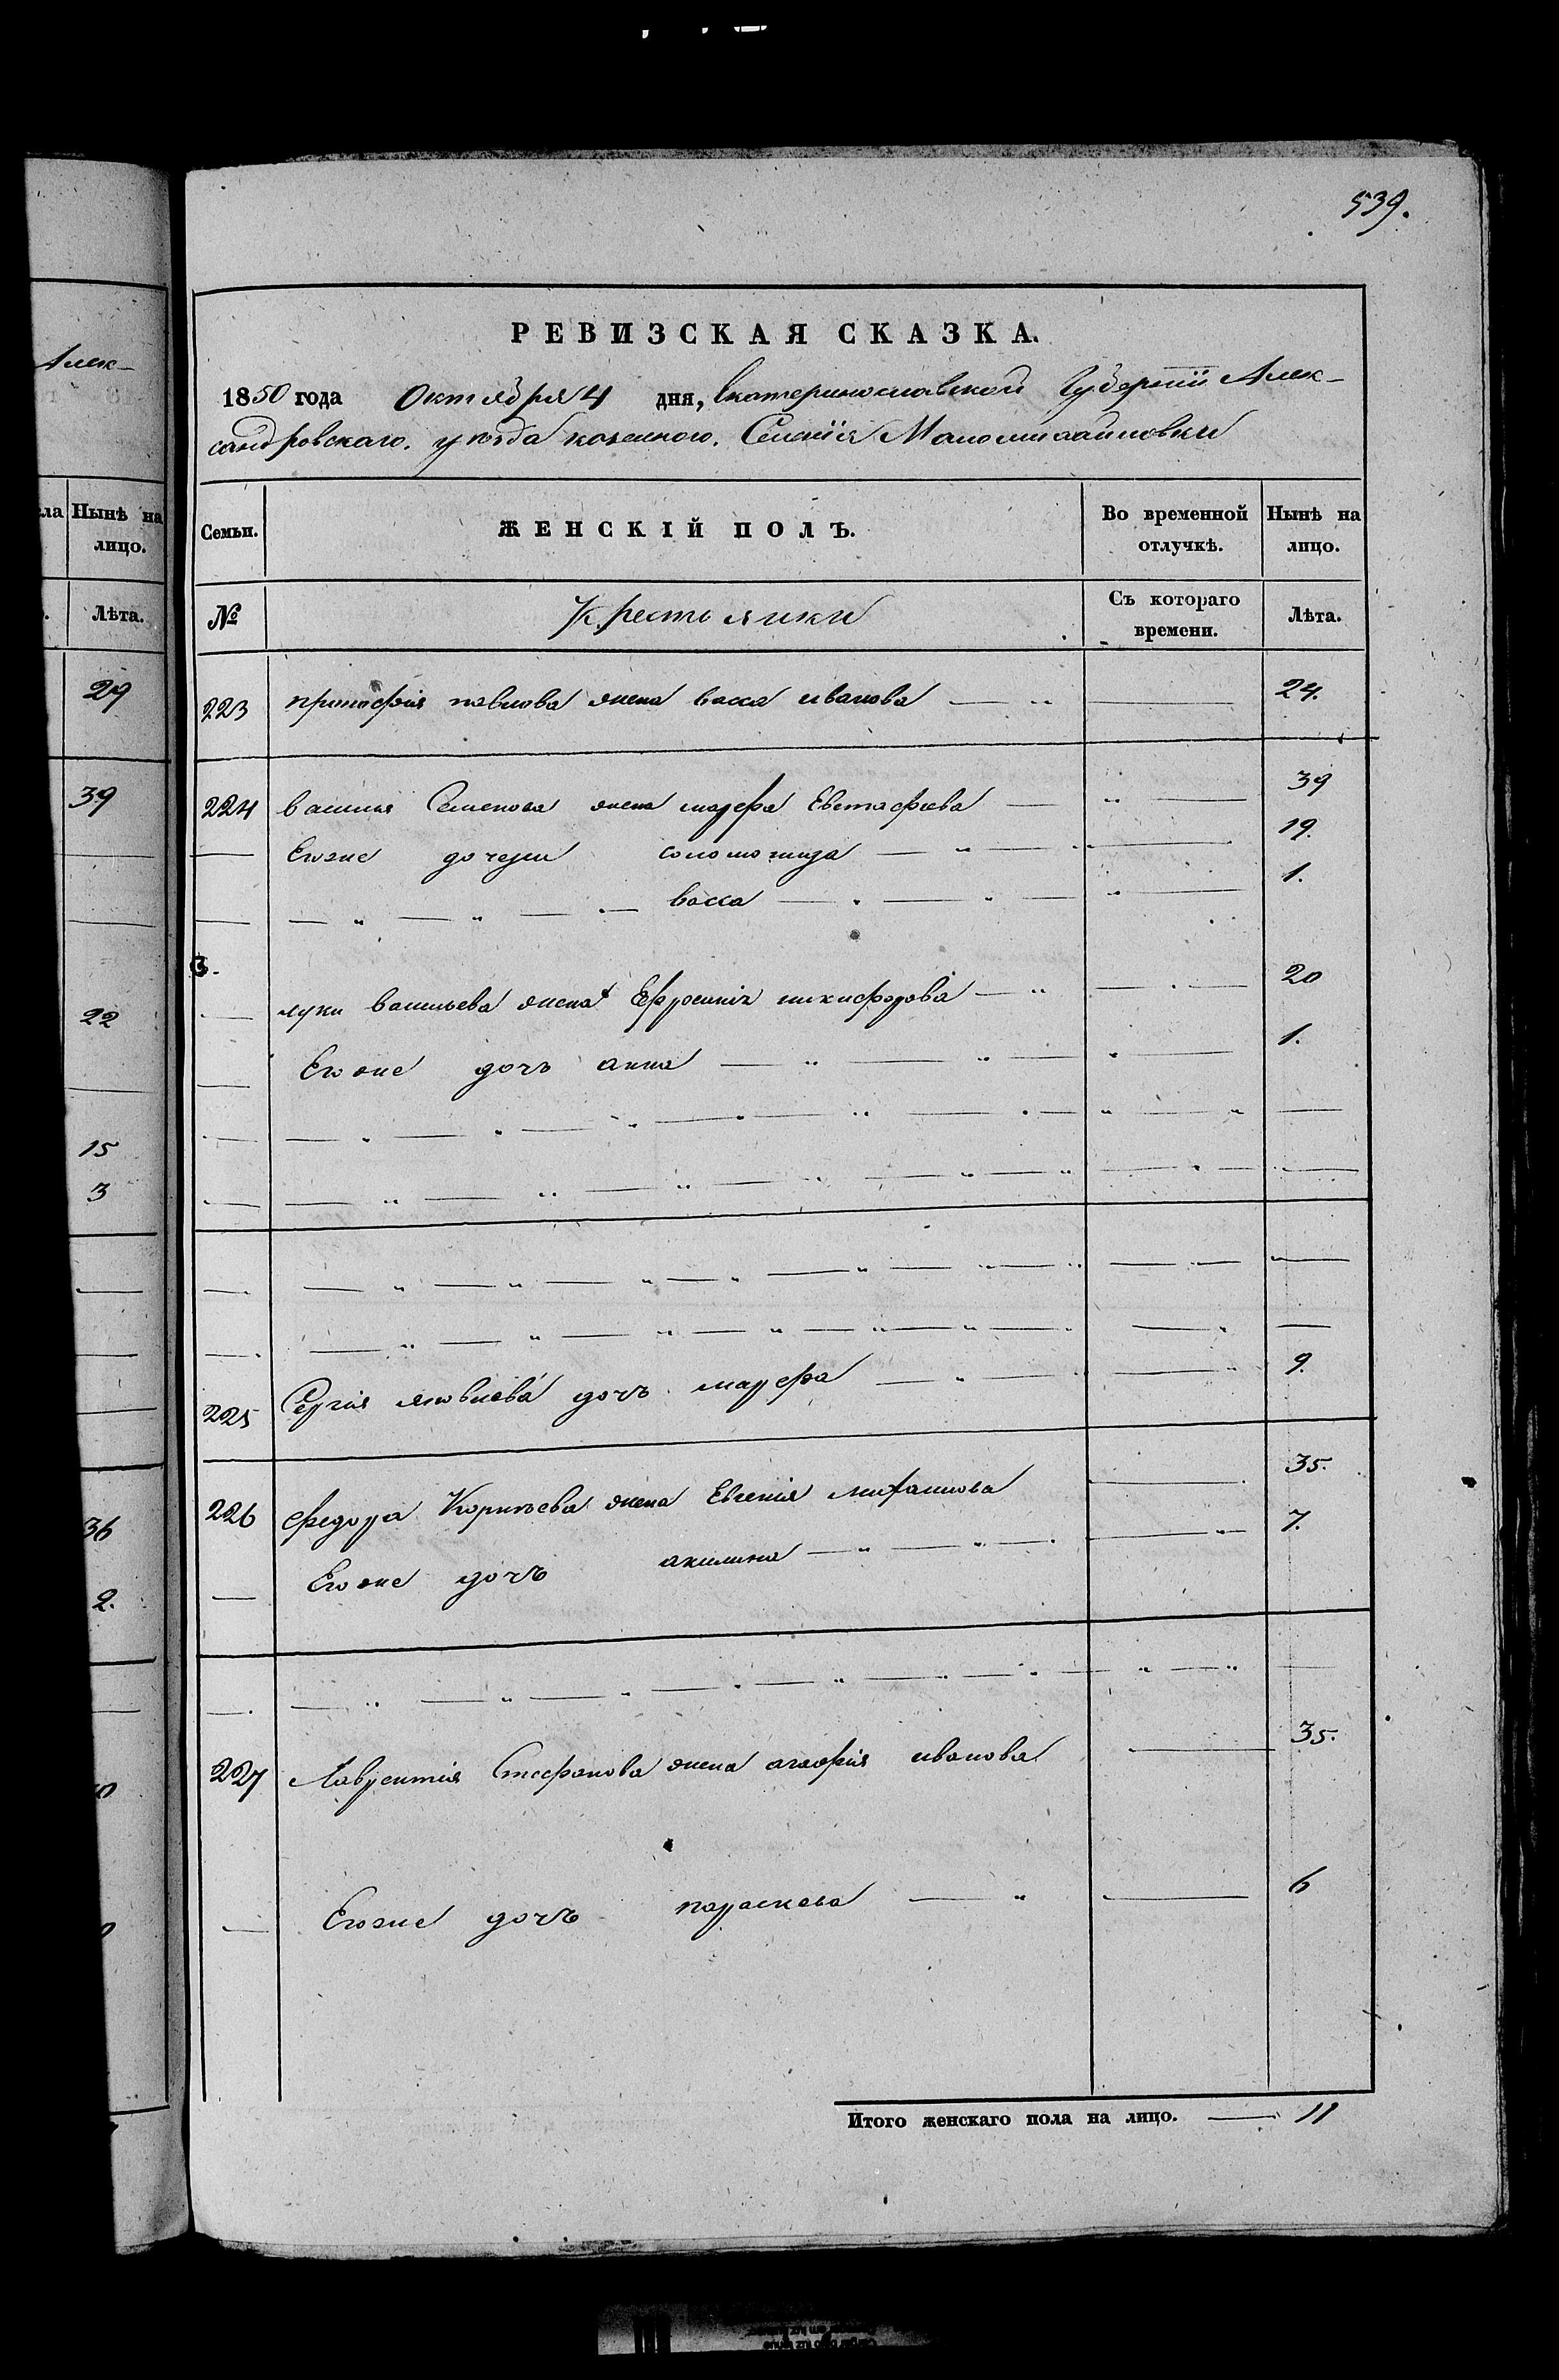 539.
РЕВИЗСКАЯ СКАЗКА.
1850 года Октября 4 дня, Екатеринославской Губернiи Алек-
сандровскаго. уѣзда казенного. Селенiя Маломихайловки
Семьи. ЖЕНСКIЙ ПОЛЪ. Во временной отлучкѣ. Нынѣ на лицо.
№ Крестьянки Съ котораго времени. Лѣта.
223 прокофiя павлова жена васса иванова 24.
224 василия Семенова жена марфа Евстафиева 39
Егоже дочери соломонида 19.
васса 1.
луки васильева жена Ефросинiя никифорова 20
Егоже дочь анна 1.
225 Сергия яковлева дочь марфа 9.
226 федора Корнѣева жена Евгения михаилова 35.
Егоже дочь акилина 7.
227 Лаврентия Стефанова жена агафия иванова 35.
Егоже дочь параскева 6
Итого женскаго пола на лицо. 11
Алек-
ла Нынѣ на
лицо.
Лѣта.
29
39
22
15
3
36
2.